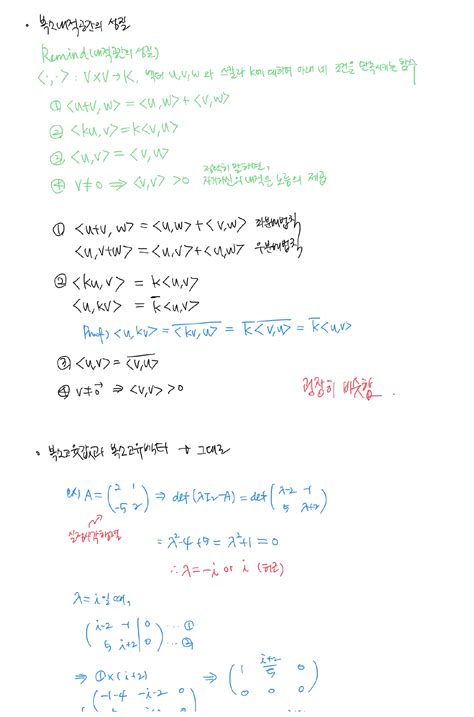 • 복소내적공간의 성질
Remind (내적공간의 성질)
<·,·> : V×V → K, 벡터 u,v,w 와 스칼라 k에 대하여 아래 네 조건을 만족시키는 함수
① <u+v, w> = <u,w> + <v,w>
② <ku,v> = k<v,u>
③ <u,v> = <v,u>
④ v≠0 ⇒ <v,v> >0 직관적으로 말하면, 자기자신의 내적은 노름의 제곱
① <u+v, w> = <u,w> + <v,w> 좌분배법칙
<u,v+w> = <u,v> + <u,w> 우분배법칙
② <ku, v> = k<u,v>
<u, kv> = k̅<u,v>
Proof) <u,kv> = \overline{<kv,u>} = \overline{k<v,u>} = k̅<u,v>
③ <u,v> = \overline{<v,u>}
④ v≠0⃗ ⇒ <v,v> >0
굉장히 비슷함.
• 복소고윳값과 복소고유벡터 → 그대로
ex) A = (2 1 / -5 2) ⇒ det(λI₂-A) = det(λ-2 -1 / 5 λ+2)
= λ²-4+5 = λ²+1 = 0
∴ λ = -i or i (허근)
λ = i 일 때,
(i-2 -1 | 0) ··· ①
(5 i+2 | 0) ··· ②
⇒ ①×(i+2) ⇒ (1 \frac{i+2}{5} 0 / 0 0 0)
(-1-4 -i-2 0)